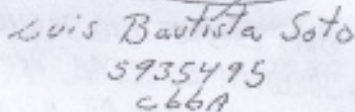 Luis Bautista Soto
5935495
cbbA